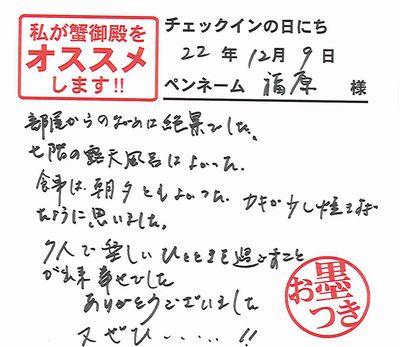 私が蟹御殿を
オススメ
します!!
チェックインの日にち
22年 12月 9日
ペンネーム 福原 様
部屋からのながめは絶景でした。
七階の露天風呂はよかった。
食事は、朝夕ともよかった カキが少し
たように思いました。
7人で楽しいひとときを過ごすこと
が出来 幸せでした
ありがとうございました
又ぜひ・・・・・!!
お墨つき